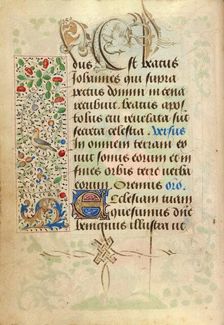 dus Est beatus
Johannes qui supra
pectus domini in cena
recubuit beatus apos
tolus cui revelata sūt
secreta celestia Versus
In omnem terram exi
uit sonus eorum et in
fines orbis terre verba
eorum Oremus oro.
Ecclesiam tuam
quesumus dn̄e
benignus illustra ut